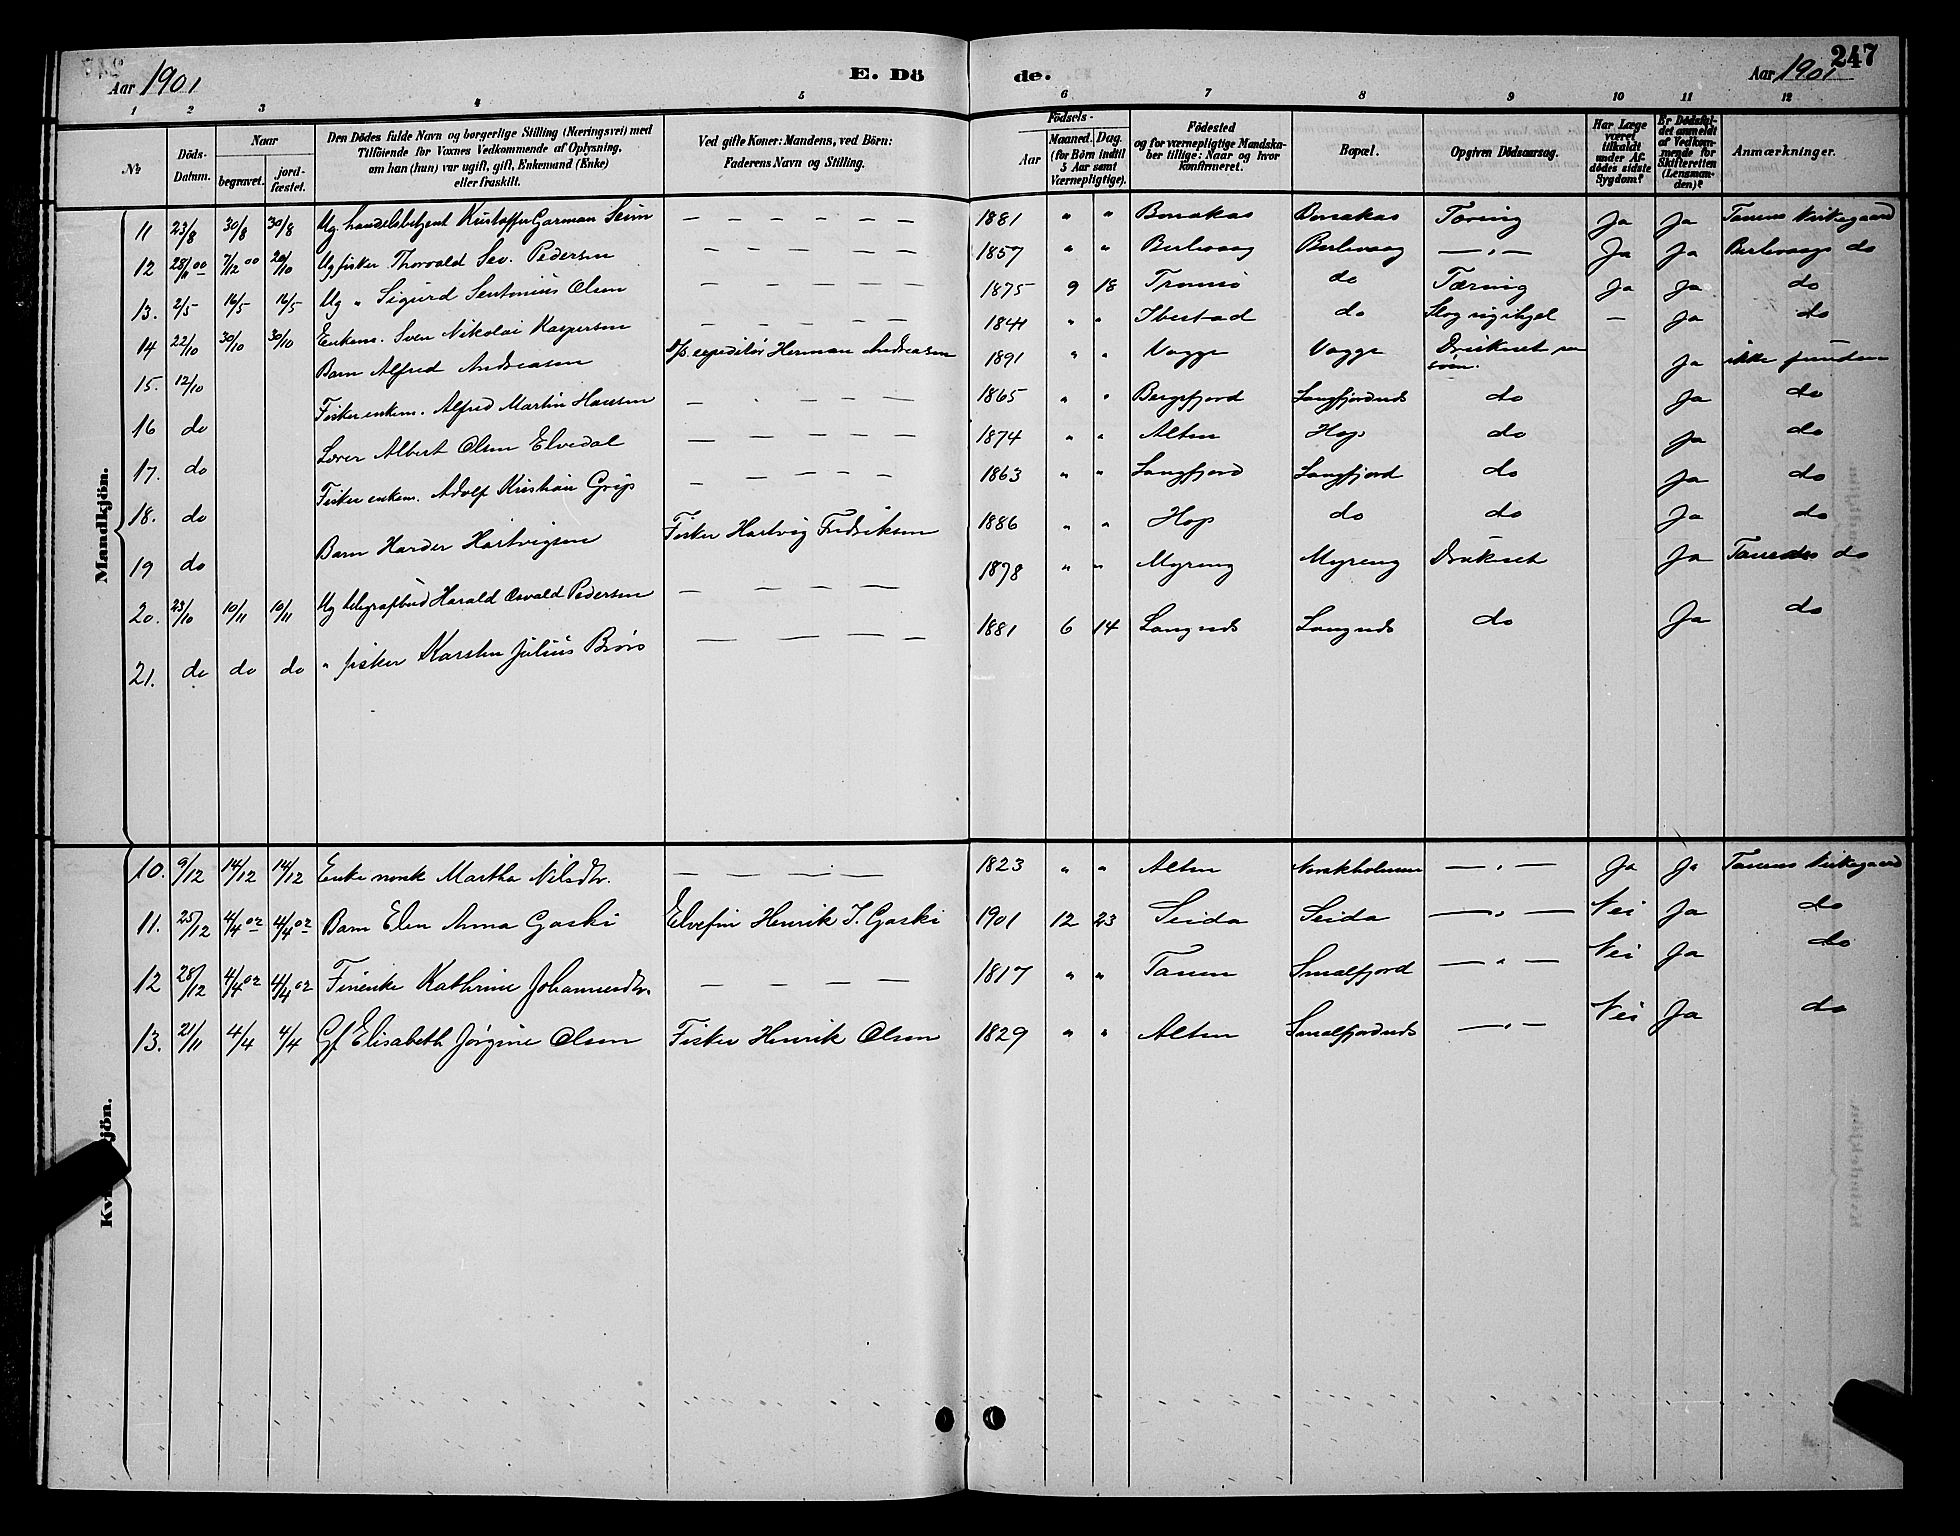 Aar 1901 E. Dö de. Aar 1901 247
1 2 3 4 5 6 7 8 9 10 11 12
№ Döds-Datum. Naar begravet. jord-fæstet. Den Dödes fulde Navn og borgerlige Stilling (Næringsvei) med Tilföiende for Voxnes Vedkommende af Oplysning, om han (hun) var ugift, gift, Enkemand (Enke) eller fraskilt. Ved gifte Koner: Mandens, ved Börn: Faderens Navn og Stilling. Födsels- Aar Maaned. Dag. (for Börn indtil 5 Aar samt Værnepligtige). Födested og for værnepligtige Mandska-ber tillige: Naar og hvor konfirmeret. Bopæl. Opgiven Dödsaarsag. Har Læge været tilkaldt under Af-dödes sidste Sygdom? Er Dödsfal-det anmeldt af Vedkom-mende for Skifteretten (Lensman-den)? Anmærkninger.
Mandkjön.
11 23/8 30/8 30/8 Ug. handelsbetjent Kristoffer Garman Seim — — — — — — 1881 " " Bonakas Bonakas Tæring Ja Ja Tanens Kirkegaard
12 7/12 00 Ug fisker Thorvald Sev. Pedersen — — — — — 1857 " " Berlevaag Berlevaag — " — Ja Ja Berlevaags do
13. 2/5 16/5 16/5 Ug " Sigurd Olsen — — — — — 1875 9 18 Tromsø do Tæring Ja Ja do
14 22/10 30/10 30/10 Enkem. Sven Nikolai Kaspersen — — — — — 1841 " " Ibestad do Slog sig ihjel — Ja do
15. 12/10 Barn Alfred Andreasen D/s. expeditør Herman Andreasen 1891 " " Vagge Vagge Druknet søen. Ja ikke funden
16 do Fisker enkem. Alfred Martin Hansen — — — — — 1865 " " Bergsfjord Langfjordnes do Ja do
17. do Lærer Albert Olsen Elvedal — — — — — 1874 " " Alten Hop do Ja do
18. do Fisker enkem. Adolf Kristian Grip — — — — — 1863 " " Langfjord Langfjord do Ja do
19 do Barn Harder Hartvigsen Fisker Hartvig Fredriksen 1886 " " Hop do do Ja do
20. 23/10 10/11 10/11 Ug telegrafbud Harald Osvald Pedersen — — — — — 1878 " " Myreng Myreng Druknet Ja do
21. do do do " fisker Karsten Julius — — — — — 1881 6 14 Langnes Langnes do Ja do
10. 9/12 14/12 14/12 Enke norsk Martha Nilsdtr. — — — — 1823 " " Alten Norskholmen — " — Ja Ja Tanens Kirkegaard
11. 25/12 4/4 02 4/4 02 Barn Elen Anna Gaski Elvefin Henrik I. Gaski 1901 12 23 Seida Seida — " — Nei Ja do
12 28/12 4/4 02 4/4 02 Finenke Kathrine Johannesdtr. — — — — 1817 " " Tanen Smalfjord — " — Nei Ja do
13. 21/11 4/4 4/4 Gf Elisabeth Jørgine Olsen Fisker Henrik Olsen 1829 " " Alten Smalfjordnes — " — Nei Ja do